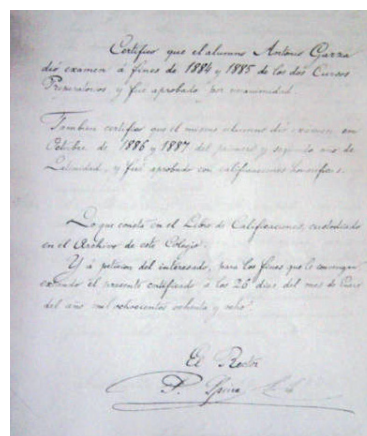 Certifico que el alumno Antonio Garza
dió examen á fines de 1884 y 1885 de los dos Cursos
Preparatorios y fué aprobado por unanimidad.
Tambien certifico que el mismo alumno dió examen en
Octubre de 1886 y 1887 del primero y segundo año de
Latinidad, y fué aprobado con calificaciones honoríficas.
Lo que consta en el Libro de Calificaciones, custodiado
en el Archivo de este Colegio.
Y á peticion del interesado, para los fines que le convengan
extiendo el presente certificado á los 26 dias del mes de
del año mil ochocientos ochenta y ocho.
El Rector
P.